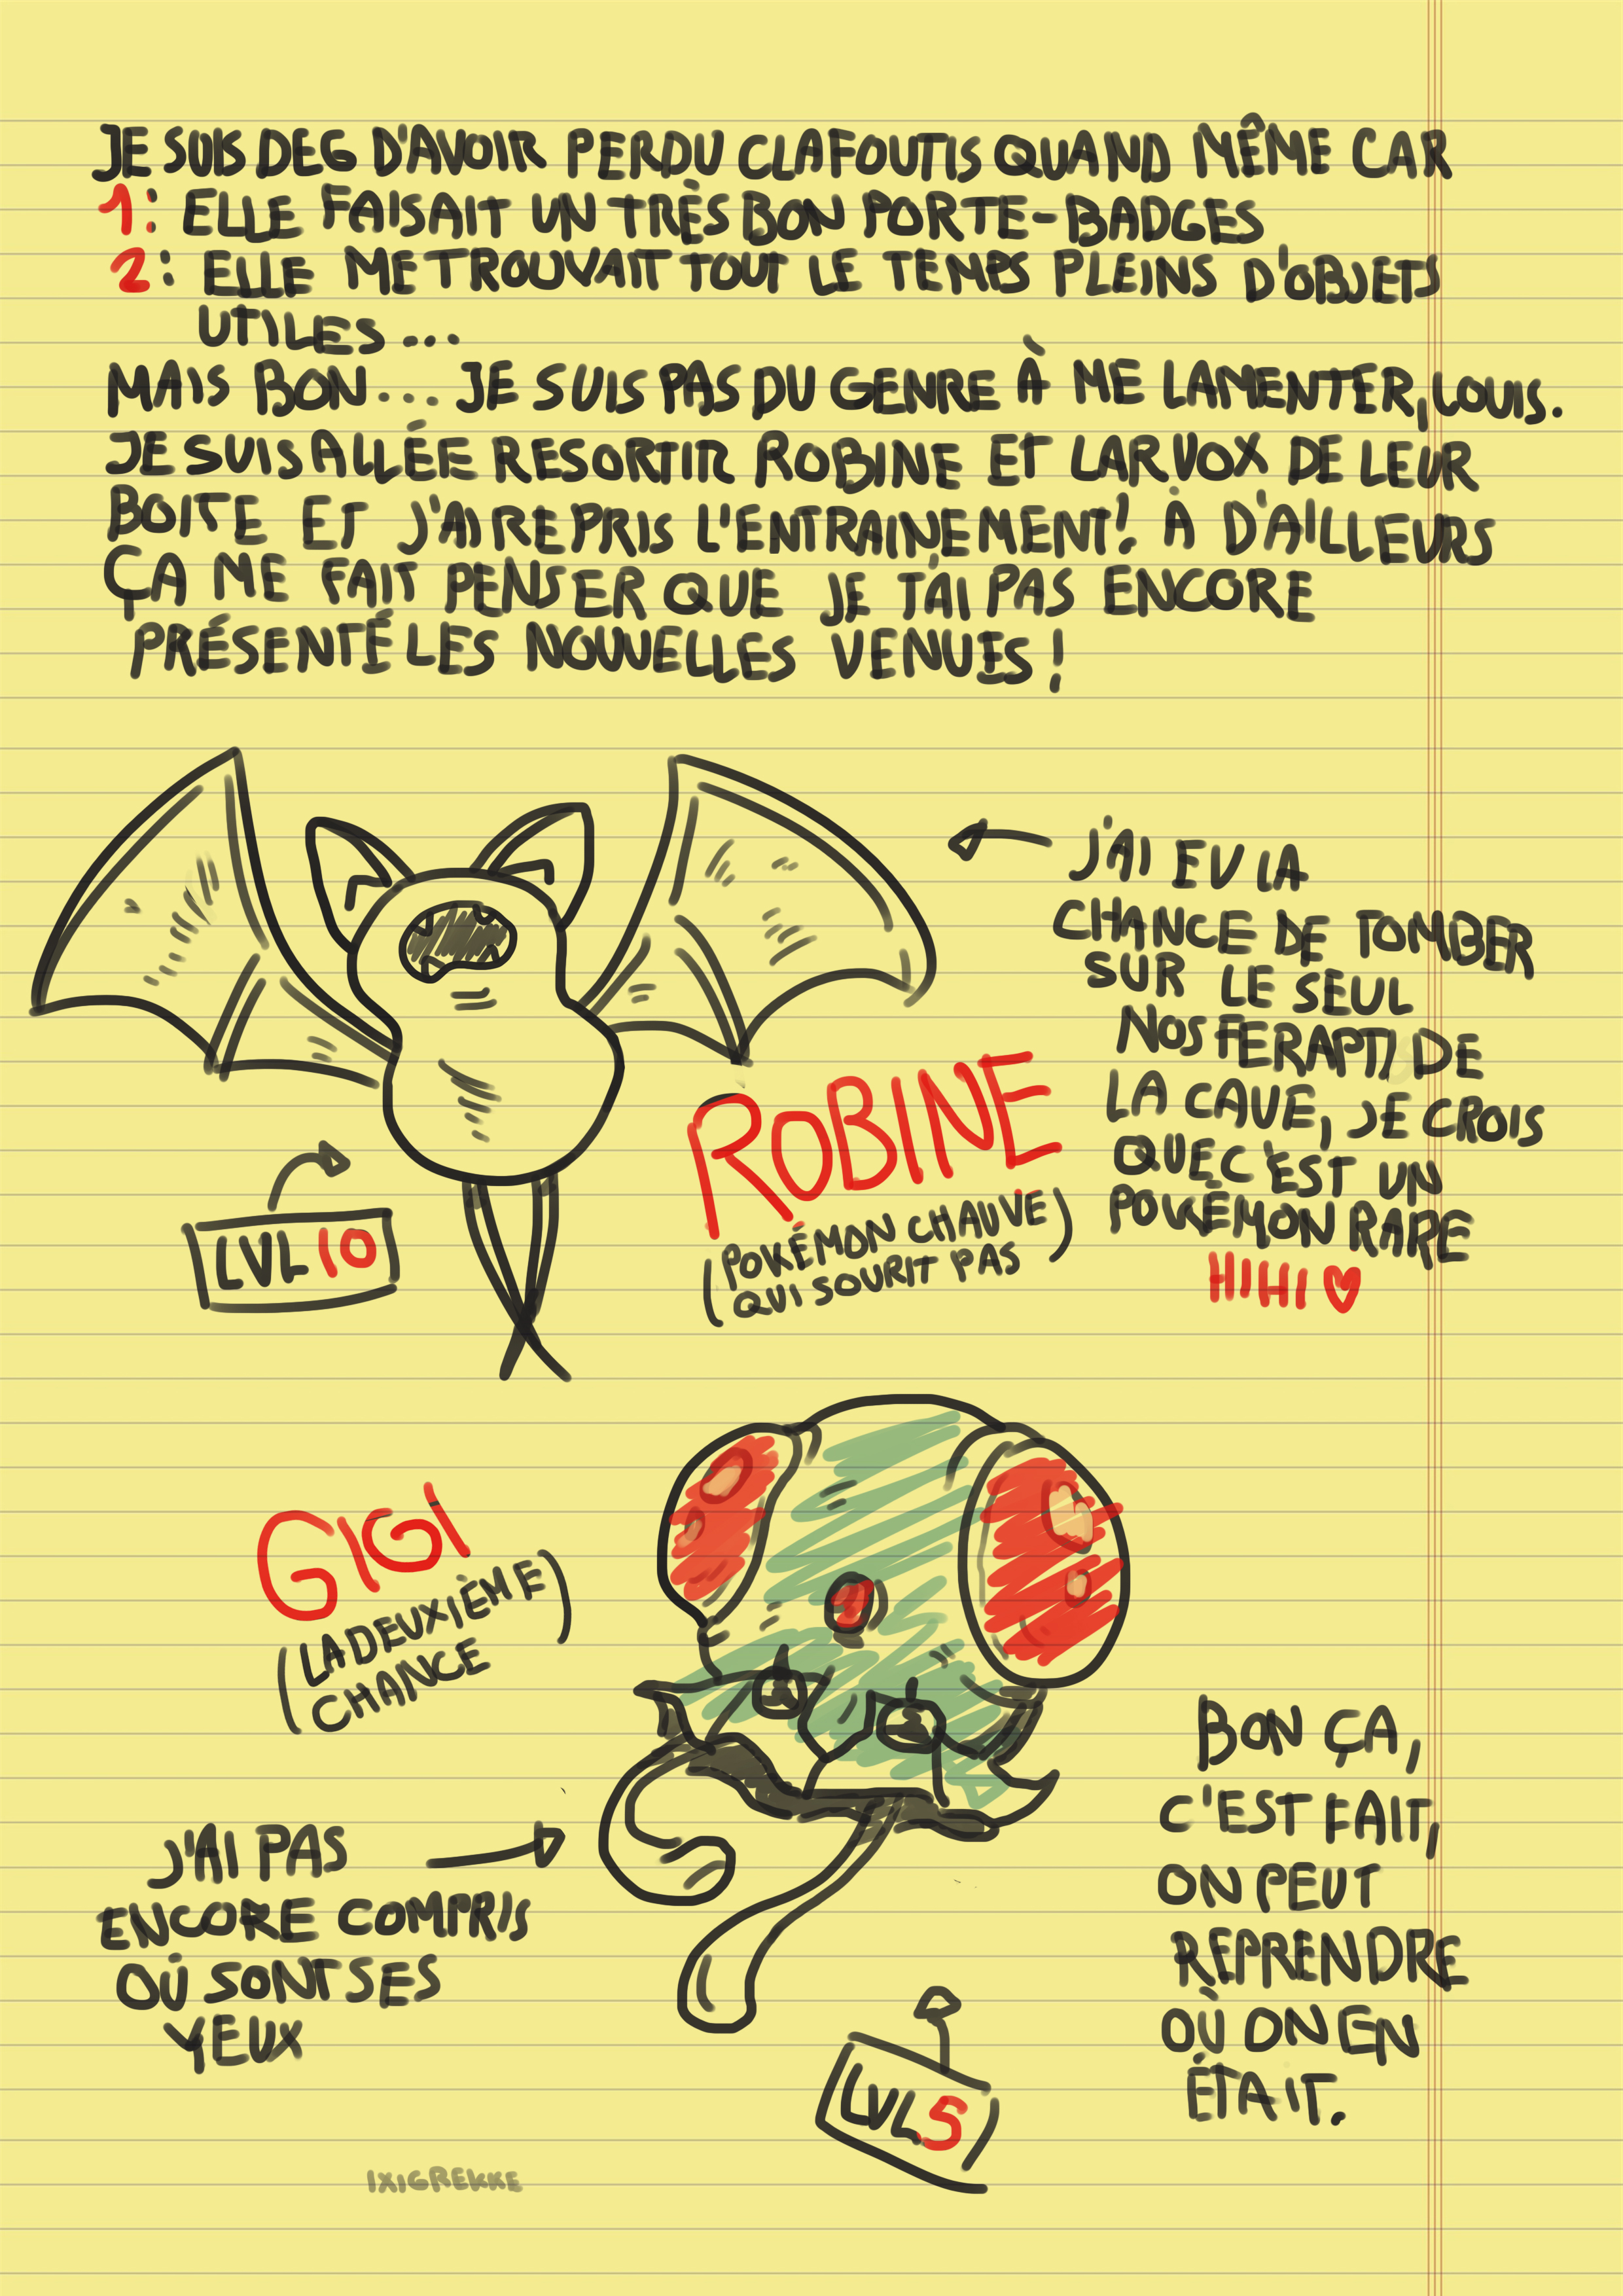 JE SUIS DEG D'AVOIR PERDU CLAFOUTIS QUAND MÊME CAR
1: ELLE FAISAIT UN TRÈS BON PORTE-BADGES
2: ELLE ME TROUVAIT TOUT LE TEMPS PLEINS D'OBJETS
UTILES...
MAIS BON.... JE SUIS PAS DU GENRE À ME LAMENTER, LOUIS.
JE SUIS ALLÉE RESORTIR ROBINE ET LARVOX DE LEUR
BOITE ET J'AI REPRIS L'ENTRAINEMENT! À D'AILLEURS
ÇA ME FAIT PENSER QUE JE T'AI PAS ENCORE
PRÉSENTÉ LES NOUVELLES VENUES!
J'AI EU LA
CHANCE DE TOMBER
SUR LE SEUL
NOSFERAPTI DE
LA CAVE, JE CROIS
QUE C'EST UN
POKÉMON RARE
HIHI ♥
ROBINE
(POKÉMON CHAUVE
QUI SOURIT PAS)
LVL 10
GIGI
(LA DEUXIÈME
CHANCE)
J'AI PAS
ENCORE COMPRIS
OÙ SONT SES
YEUX
BON ÇA,
C'EST FAIT,
ON PEUT
REPRENDRE
OÙ ON EN
ÉTAIT.
LVL 5
IXIGREKKE